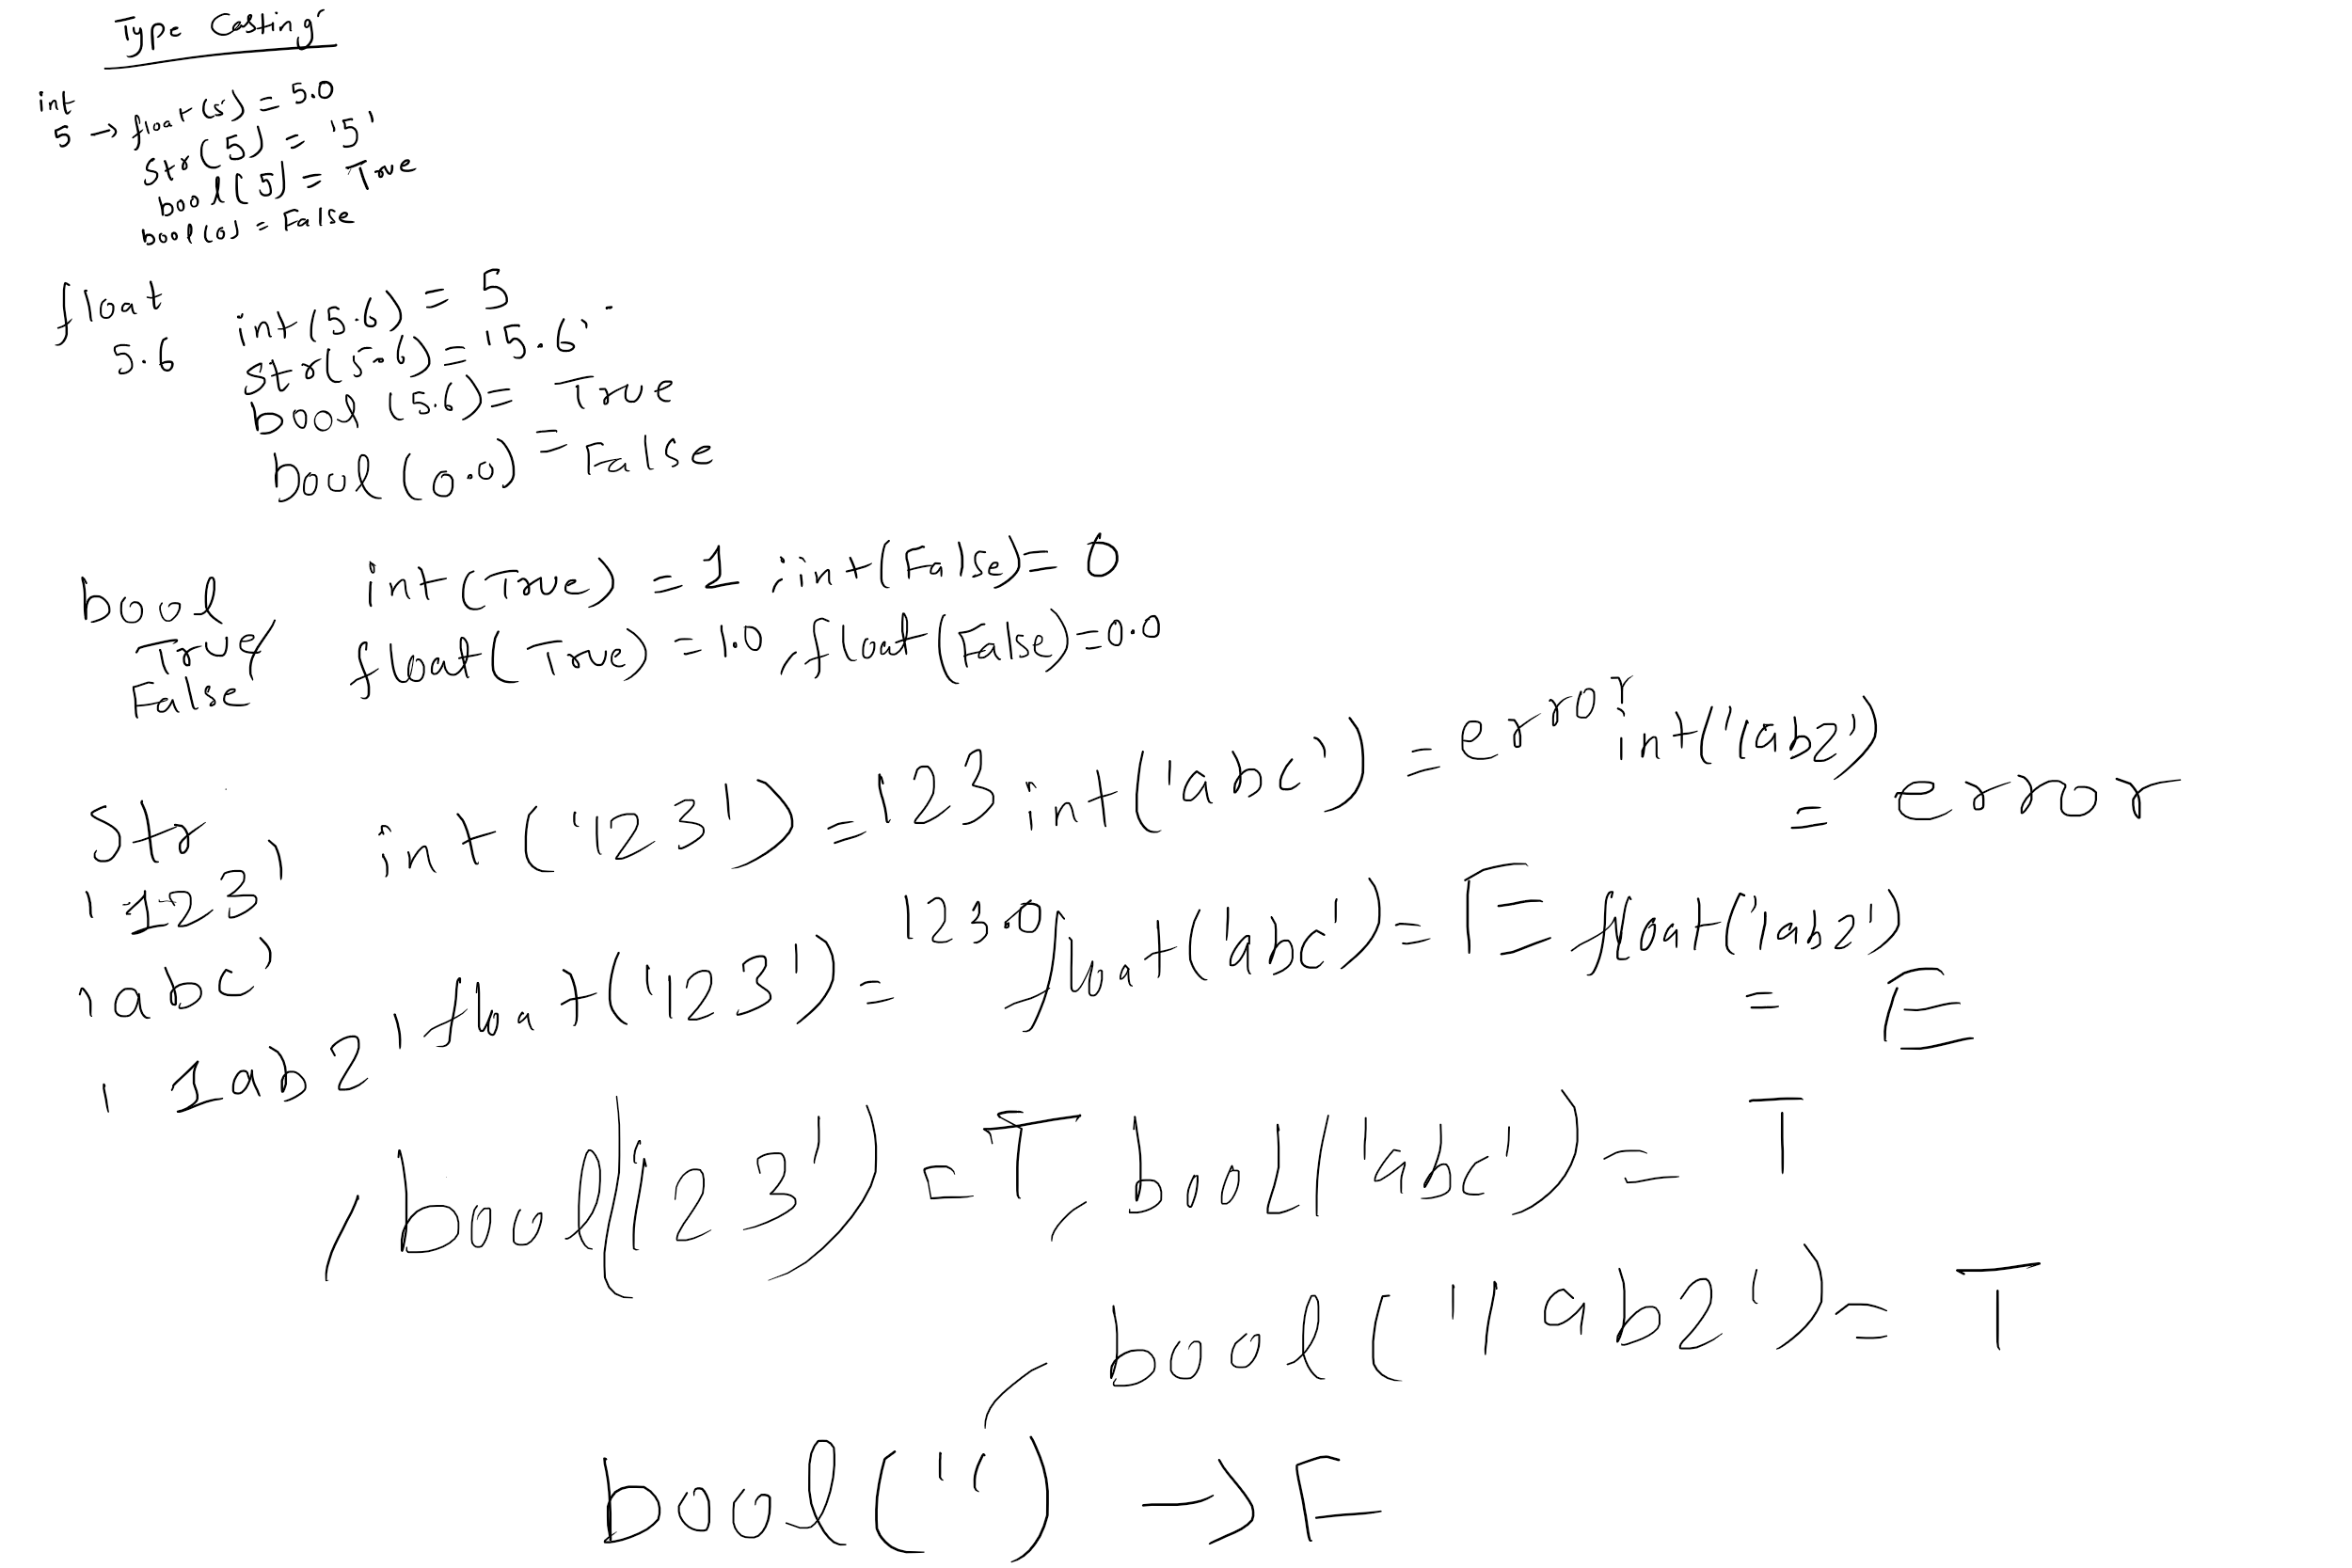 Type Casting
int
5 → float(5) = 5.0
str(5) = '5'
bool(5) = True
bool(0) = False
float
5.6
int(5.6) = 5
str(5.6) = '5.6'
bool(5.6) = True
bool(0.0) = False
bool
True/
False
int(True) = 1, int(False) = 0
float(True) = 1.0, float(False) = 0.0
str
'123'
'abc'
'1ab2'
int('123') = 123 int('abc') = error int('1ab2') = error
float('123') = 123.0 float('abc') = E float('1ab2') = E
, bool('123') = T, bool('abc') = T
, bool('1ab2') = T
bool('') → F